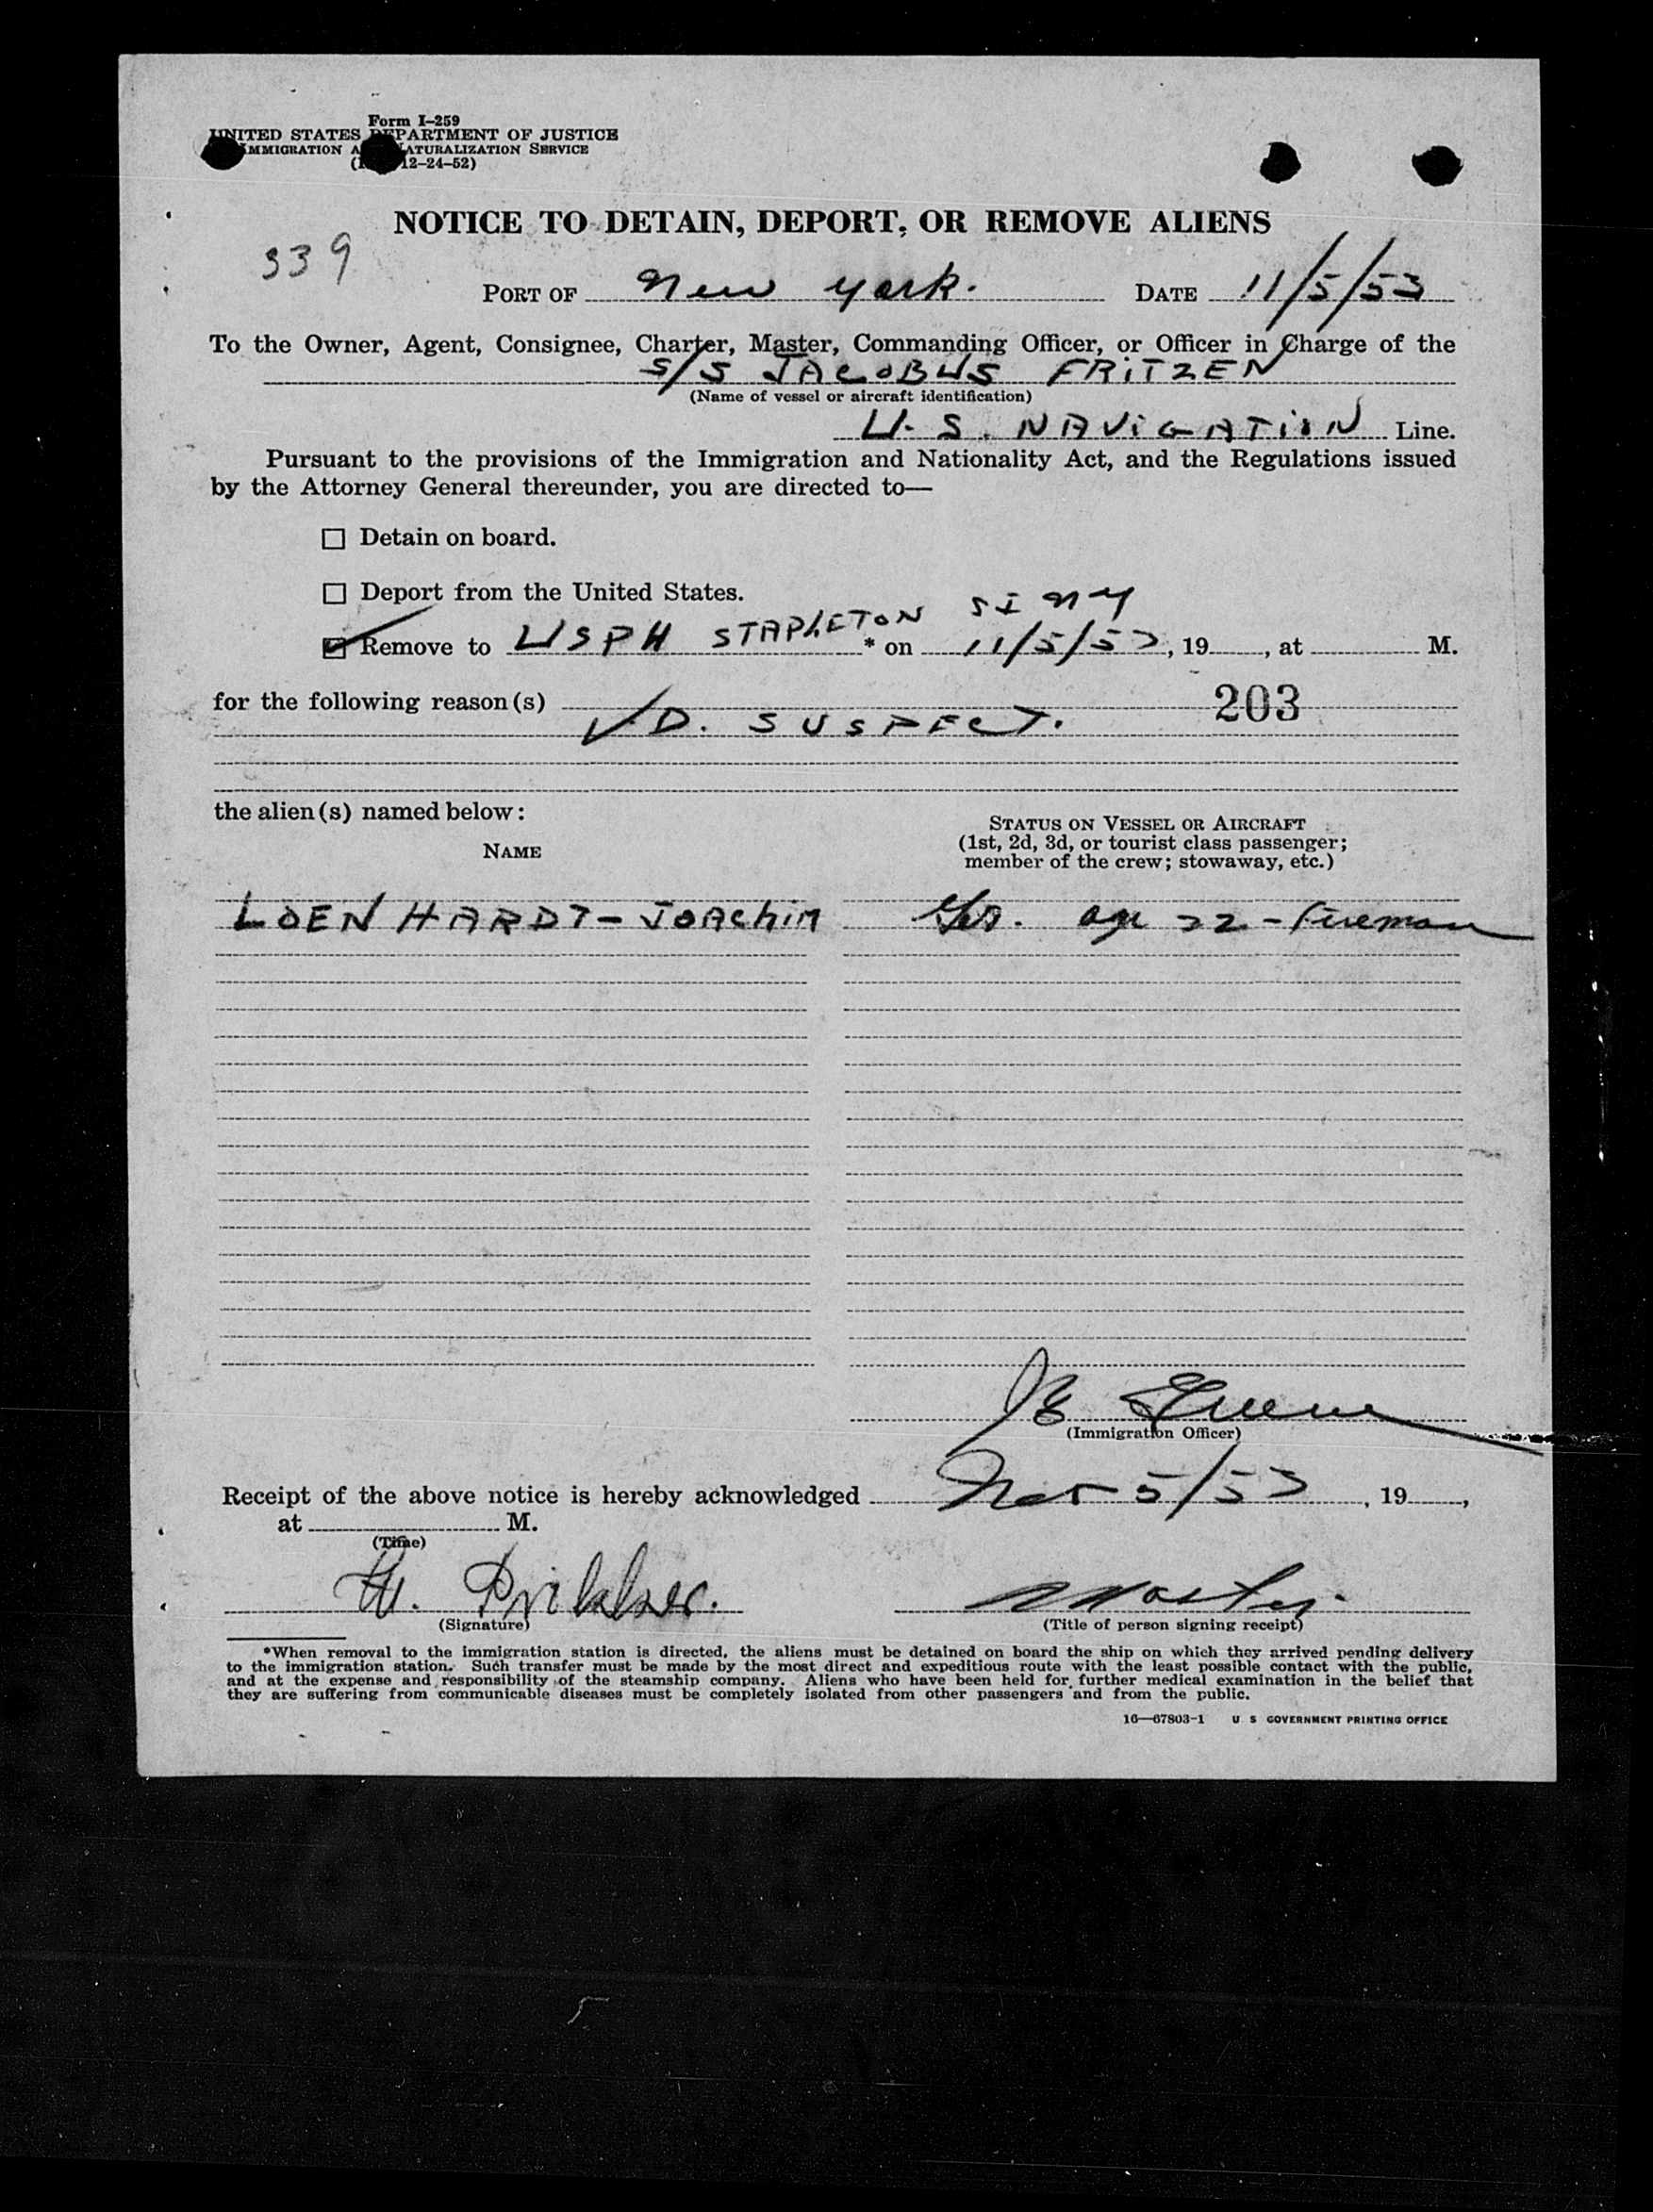 Form I-259
UNITED STATES DEPARTMENT OF JUSTICE
IMMIGRATION NATURALIZATION SERVICE
12-24-52)
NOTICE TO DETAIN, DEPORT, OR REMOVE ALIENS
339
PORT OF New York. DATE 11/5/53
To the Owner, Agent, Consignee, Charter, Master, Commanding Officer, or Officer in Charge of the
S/S JACOBUS FRITZEN
(Name of vessel or aircraft identification)
U.S. NAVIGATION Line.
Pursuant to the provisions of the Immigration and Nationality Act, and the Regulations issued
by the Attorney General thereunder, you are directed to—
☐ Detain on board.
☐ Deport from the United States.
☑ Remove to USPH STAPLETON SI NY * on 11/5/53, 19, at M.
for the following reason(s) 203
V.D. SUSPECT.
the alien(s) named below:
NAME
STATUS ON VESSEL OR AIRCRAFT
(1st, 2d, 3d, or tourist class passenger;
member of the crew; stowaway, etc.)
LOENHARDT - JOAchiM Ger. age 22 - Fireman
Greene
(Immigration Officer)
Receipt of the above notice is hereby acknowledged Nov 5/53, 19,
at M.
(Time)
Master
(Signature) (Title of person signing receipt)
*When removal to the immigration station is directed, the aliens must be detained on board the ship on which they arrived pending delivery
to the immigration station. Such transfer must be made by the most direct and expeditious route with the least possible contact with the public,
and at the expense and responsibility of the steamship company. Aliens who have been held for further medical examination in the belief that
they are suffering from communicable diseases must be completely isolated from other passengers and from the public.
16—67803-1 U S GOVERNMENT PRINTING OFFICE